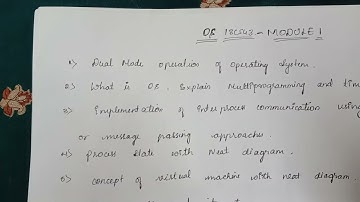 OS 18CS43 - MODULE 1
1) Dual Mode operation of operating system.
2) What is OS. Explain Multiprogramming and tim
3) Implementation of interprocess communication using
or message passing approaches.
4) Process State with Neat diagram.
5) concept of virtual machine with neat diagram.